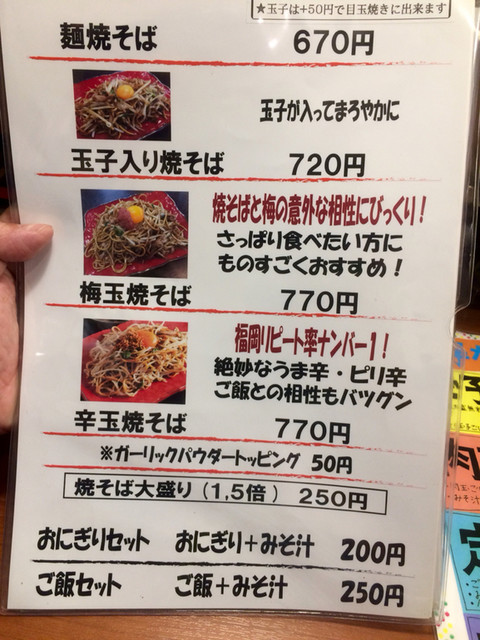 ★玉子は+50円で目玉焼きに出来ます
麺焼そば 670円
玉子が入ってまろやかに
玉子入り焼そば 720円
焼そばと梅の意外な相性にびっくり！
さっぱり食べたい方に
ものすごくおすすめ！
梅玉焼そば 770円
福岡リピート率ナンバー1！
絶妙なうま辛・ピリ辛
ご飯との相性もバツグン
辛玉焼そば 770円
※ガーリックパウダートッピング 50円
焼そば大盛り（1,5倍） 250円
おにぎりセット おにぎり＋みそ汁 200円
ご飯セット ご飯＋みそ汁 250円